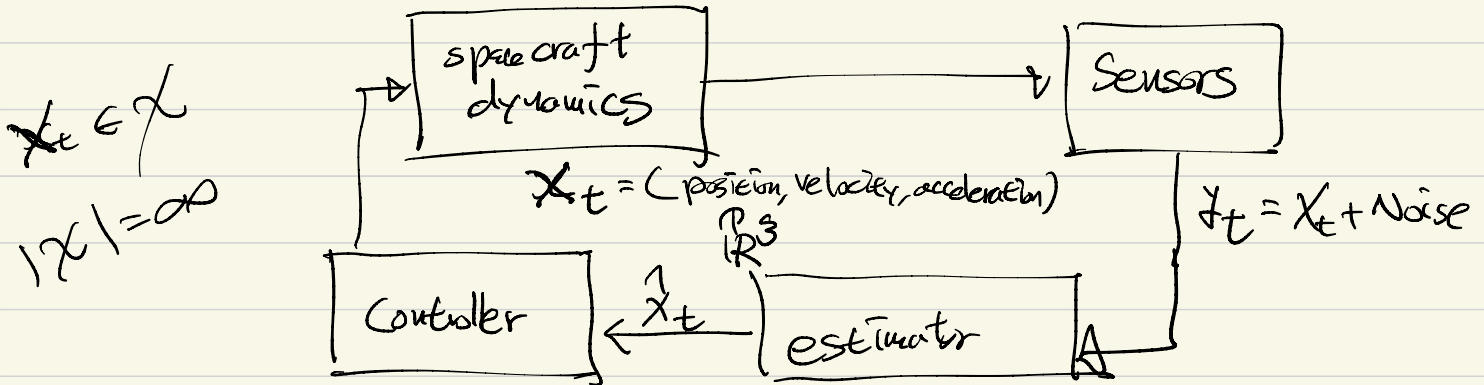 spacecraft
dynamics
Sensors
x_t ∈ 𝒳
|𝒳| = ∞
x_t = (position, velocity, acceleration)
ℝ³
y_t = x_t + Noise
Controller
x̂_t
estimator